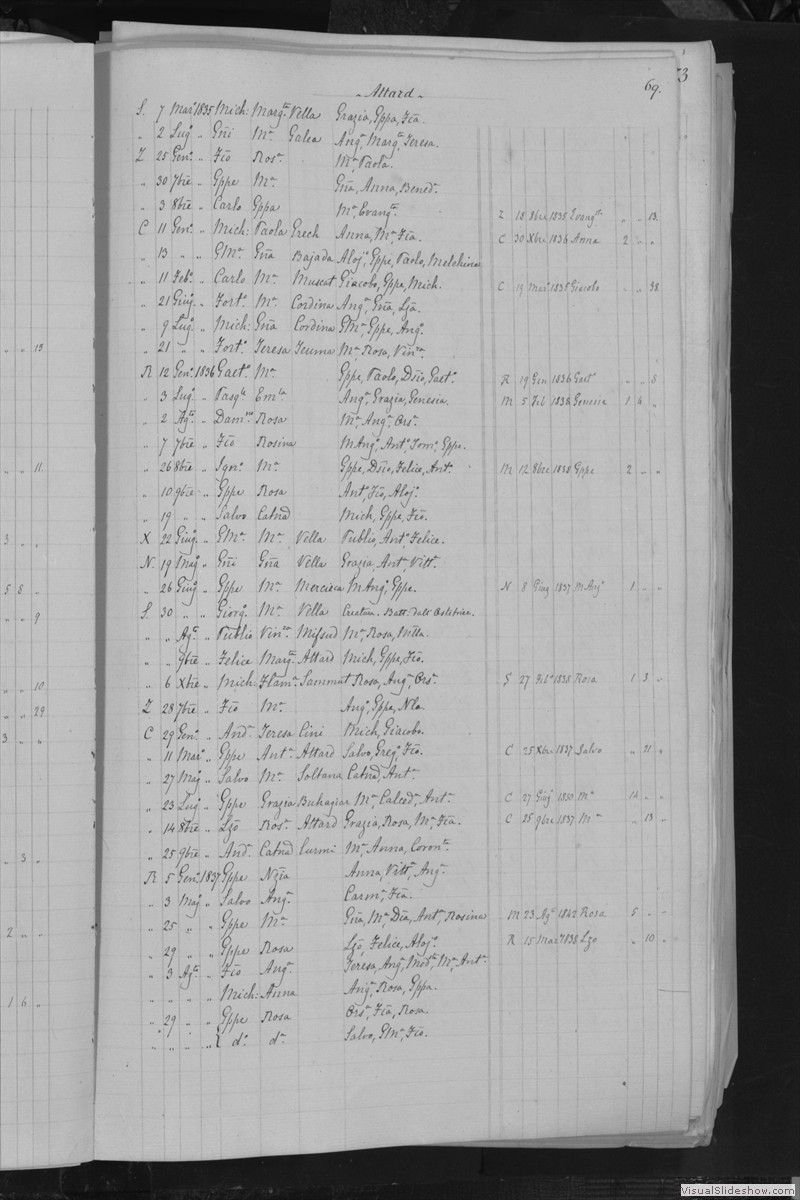 - Attard - 69. 73
S. 7 Marº 1835 Mich: Margta Vella Grazia, Gppa, Fia.
" 2 Lugº " Gni Ma Galea Anga, Margta, Teresa.
Z 25 Genº " Fio Rosa Ma, Paola.
" 30 7bre " Gppe Ma Gña, Anna, Bened.
" 3 8bre " Carlo Gppa Ma, Evangta. Z 18 8bre 1835 Evangta " " 13.
C 11 Genº " Mich: Paola Grech Anna, Ma, Fia. C 30 Xbre 1836 Anna 2 " "
" 13 " " GMa Gña Bajada Aloja, Gppe, Paolo, Melchina
" 11 Febº " Carlo Ma Muscat Giacobo, Gppe, Mich. C 19 Marº 1835 Giacobo " " 38
" 21 Giugº " Fortº Ma Cordina Anga, Gña, Lza.
" 9 Lugº " Mich: Gña Cordina GMa, Gppe, Angº.
15 " 21 " " Fortº Teresa Teuma Ma, Rosa, Vinca.
R 12 Genº 1836 Gaetº Ma Gppe, Paolo, Dsio, Gaetº. R 19 Gen 1836 Gaetº " " 8
" 3 Lugº " Pasqle Emla Anga, Grazia, Genesia. M 5 Feb 1838 Genesia 1 4 "
" 2 Agto " Damno Rosa Ma, Anga, Orsa.
" 7 7bre " Fio Rosina MAnga, Antº, Tomº, Gppe.
11. " 26 8bre " Ignº Ma Gppe, Dsio, Felice, Antº. M 12 8bre 1838 Gppe 2 " "
" 10 9bre " Gppe Rosa Antº, Fio, Alojº.
" 19 " " Salvo Catnа Mich, Gppe, Fio.
3 X 22 Giugº " GMa Ma Vella Publio, Antº, Felice.
N. 19 Magº " Gni Gña Vella Grazia, Anta, Vitta.
5 8 " 26 Giugº " Gppe Ma Mercieca MAnga, Gppe. N 8 Giug 1837 M Anga 1 " "
9 S. 30 " " Giorgº Ma Vella Creatura. Batt. dalt Ostetrice.
" " Agto " Publio Vinca Mifsud Ma, Rosa, Nilla.
" " 9bre " Felice Margta Attard Mich, Gppe, Fio.
10 " 6 Xbre " Mich: Flama Sammut Rosa, Anga, Orsa. S 27 Febº 1838 Rosa 1 3 "
29 Z 28 7bre " Fio Ma Angº, Gppe, Nla.
3 C 29 Genº " Anda Teresa Cini Mich, Giacobo.
" 11 Marº " Gppe Anta Attard Salvo, Gregº, Fio. C 25 Xbre 1837 Salvo " 21 "
" 27 Magº " Salvo Ma Soltana Catnа, Anta.
" 23 Lugº " Gppe Grazia Buhagiar Ma, Calceda, Anta. C 27 Giug 1850 Ma 14 " "
" 14 8bre " Lzo Rosa Attard Grazia, Rosa, Ma, Fia. C 25 9bre 1837 Ma " 13 "
3 " 25 9bre " Anda Catnа Curmi Ma, Anna, Coronta.
R 5 Genº 1837 Gppe Ngia Anna, Vitta, Anga.
" 3 Magº " Salvo Anga Carma, Fia.
2 " 25 " " Gppe Ma Gña, Ma, Dia, Anta, Rosina M 23 Agº 1842 Rosa 5 " "
" 29 " " Gppe Rosa Lzo, Felice, Alojº. R 15 Marº 1838 Lzo " 10 "
" 3 Agto " Fio Anga Teresa, Anga, Modta, Ma, Anta.
1 6 " " " " Mich: Anna Anga, Rosa, Gppa.
" 29 " " Gppe Rosa Orsa, Fia, Rosa.
" " " " { dº da Salvo, GMa, Fio.
VisualSlideshow.com